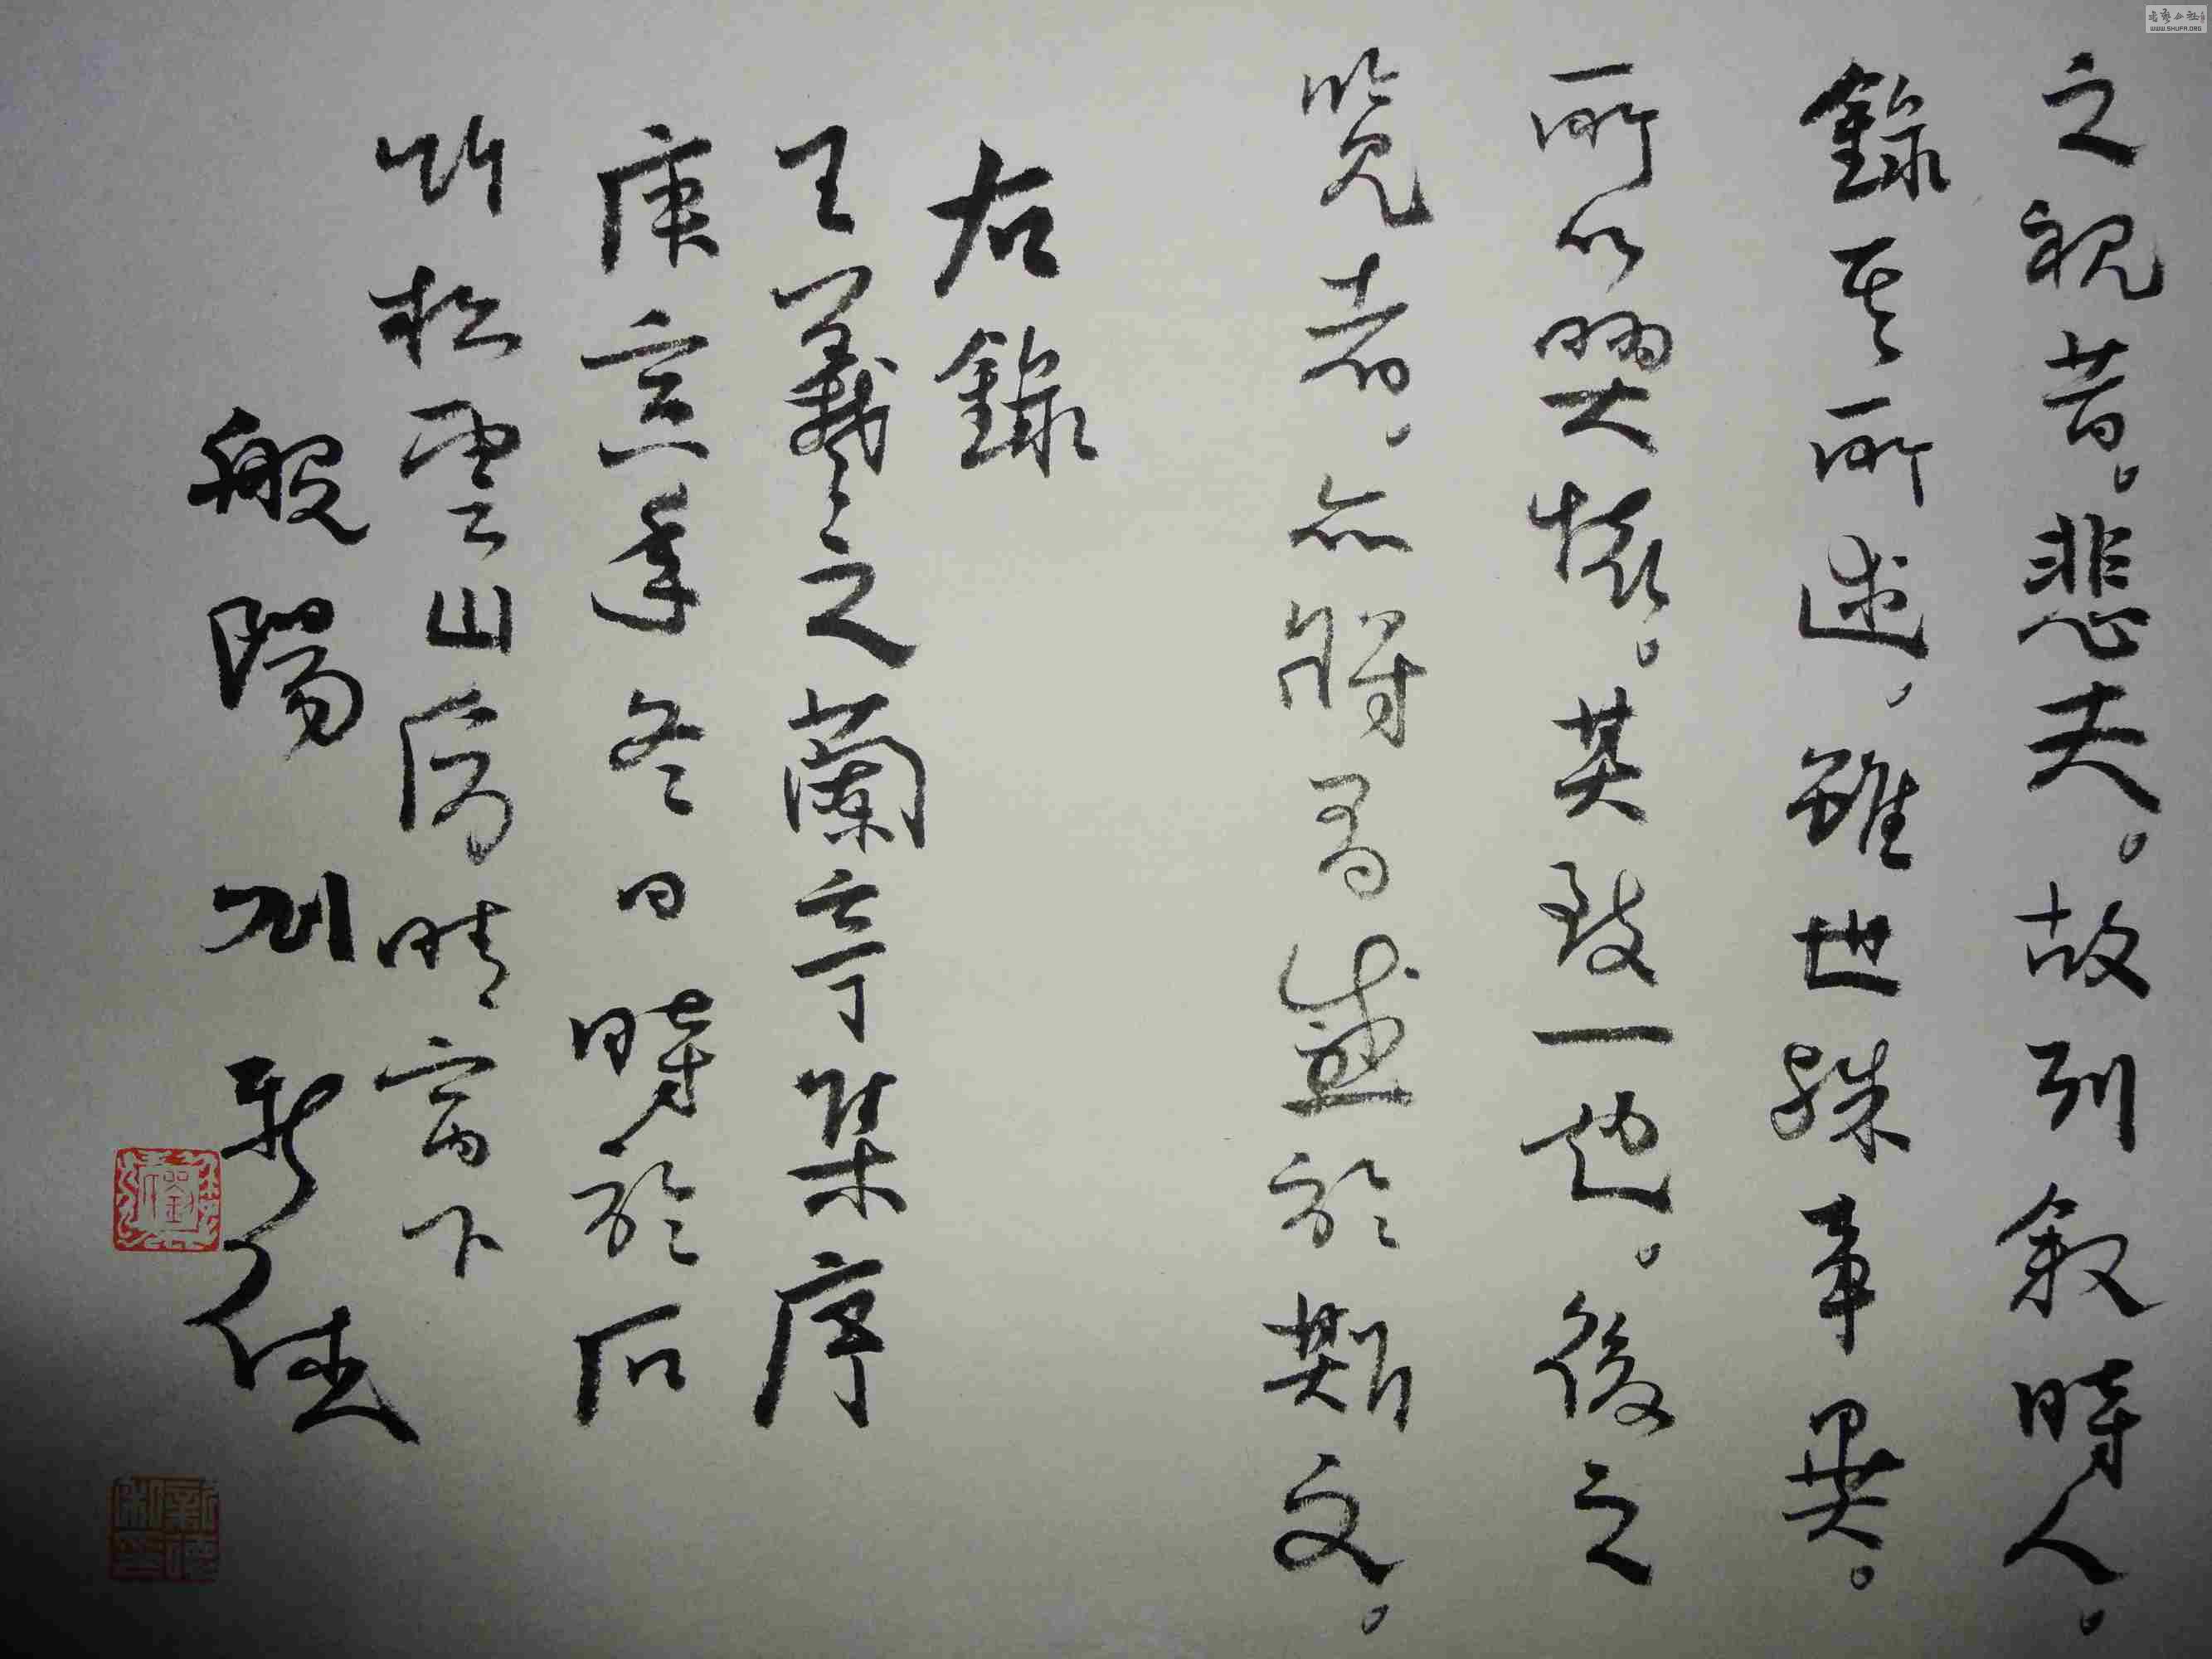 之視昔。悲夫。故列敘時人。
錄其所述,雖世殊事異。
所以興懷。其致一也。後之
覽者,亦將有感於斯文。
右錄
王羲之蘭亭集序
庚寅年冬日時於石
竹松雲山房晴窗下
般陽刘新德
WWW.SHUFA.ORG